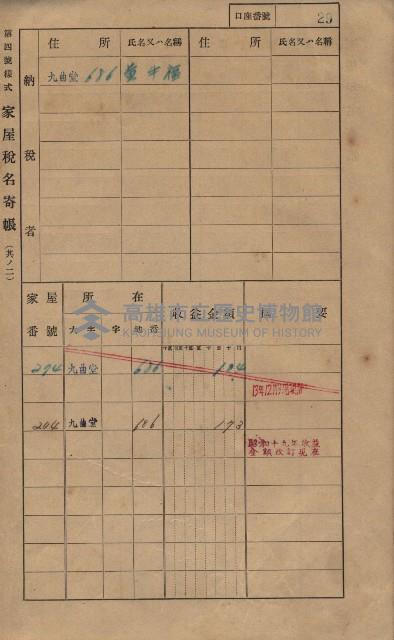 口座番號 29
第四號樣式 家屋稅名寄帳 (其ノ二)
納稅者
住所 氏名又ハ名稱 住所 氏名又ハ名稱
九曲堂 686
家屋番號 所在 收益金額 摘要
大字 字 地番
294 九曲堂 686 104
204 九曲堂 186 173
昭和十九年收益
金額改訂現在
高雄市立歷史博物館
KAOHSIUNG MUSEUM OF HISTORY